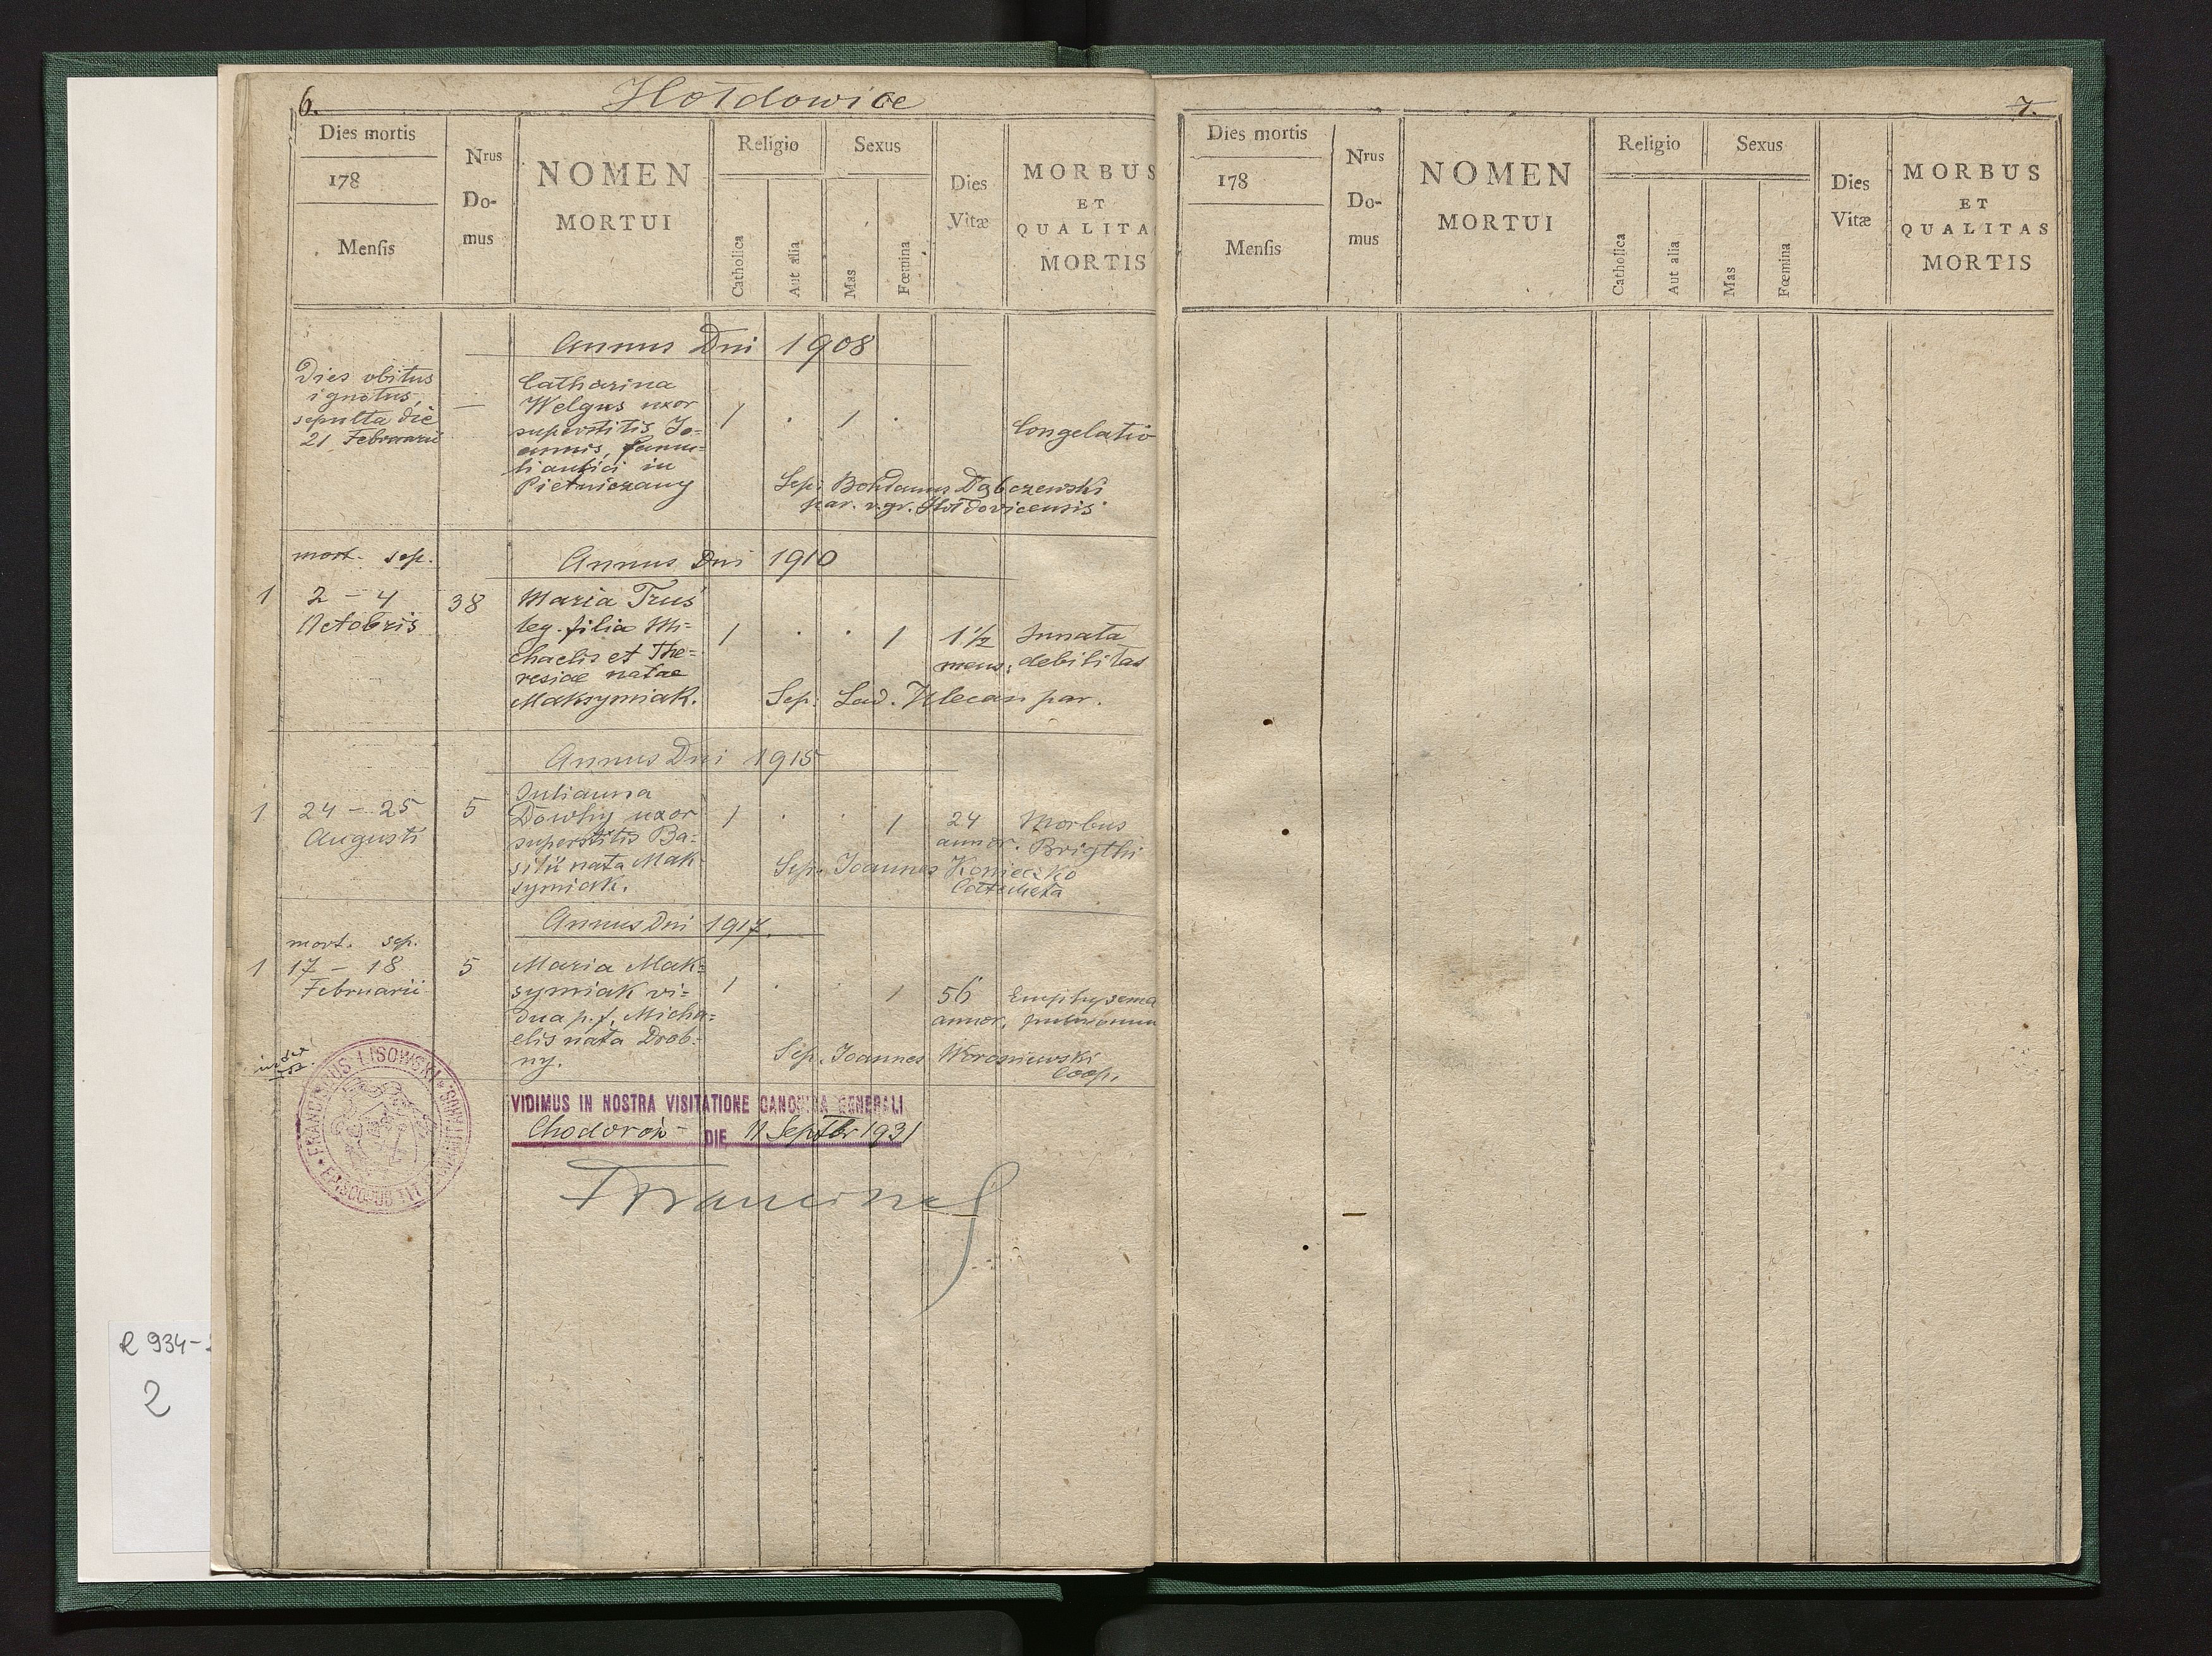 6.
Hołdowice
Dies mortis
178
Mensis
Nrus
Do-
mus
NOMEN
MORTUI
Religio
Catholica
Aut alia
Sexus
Mas
Fœmina
Dies
Vitæ
MORBUS
ET
QUALITA
MORTIS
Annus Dni 1908
Dies obitus
ignotus,
sepulta die
21 Februarii
—
Catharina
Welgus uxor
superstitis Jo=
annis, famu=
li antici in
Pietniczany
1 . 1 .
Congelatio
Sep. Bohdanus Dąbczewski
par. r. gr. Hołdovicensis
mort. sep.
Annus Dni 1910
1
2 - 4
Octobris
38
Maria Truś
leg. filia Mi=
chaelis et The=
resiae natae
Maksymiak.
1 . . 1
1 1/2
mens.
Innata
debilitas
Sep. Lad. par.
Annus Dni 1915
1
24 - 25
Augusti
5
Julianna
Dowhy uxor
superstitis Ba=
silii nata Mak
symiak.
1 . . 1
24
annor.
Morbus
Brigthi
Sep. Joannes Konieczko
Catecheta
Annus Dni 1917.
mort. sep.
1
17 - 18
Februarii
5
Maria Mak=
symiak vi=
dua p. f. Micha=
elis nata Drob=
ny.
1 . . 1
56
annor.
Emphysema
pulmonum
Sep. Joannes Woroniewski
Coop.
FRANCISCUS LISOWSKI
EPISCOPUS TIT.
VIDIMUS IN NOSTRA VISITATIONE CANONICA GENERALI
Chodorów DIE 11 Septbr 1931
R 934-
2
7.
Dies mortis
178
Mensis
Nrus
Do-
mus
NOMEN
MORTUI
Religio
Catholica
Aut alia
Sexus
Mas
Fœmina
Dies
Vitæ
MORBUS
ET
QUALITAS
MORTIS